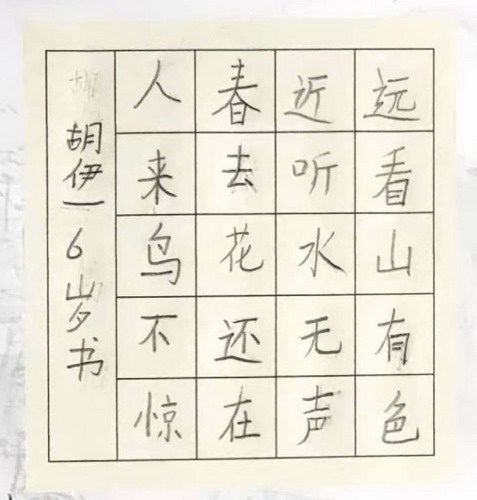 远看山有色
近听水无声
春去花还在
人来鸟不惊
胡伊一6岁书